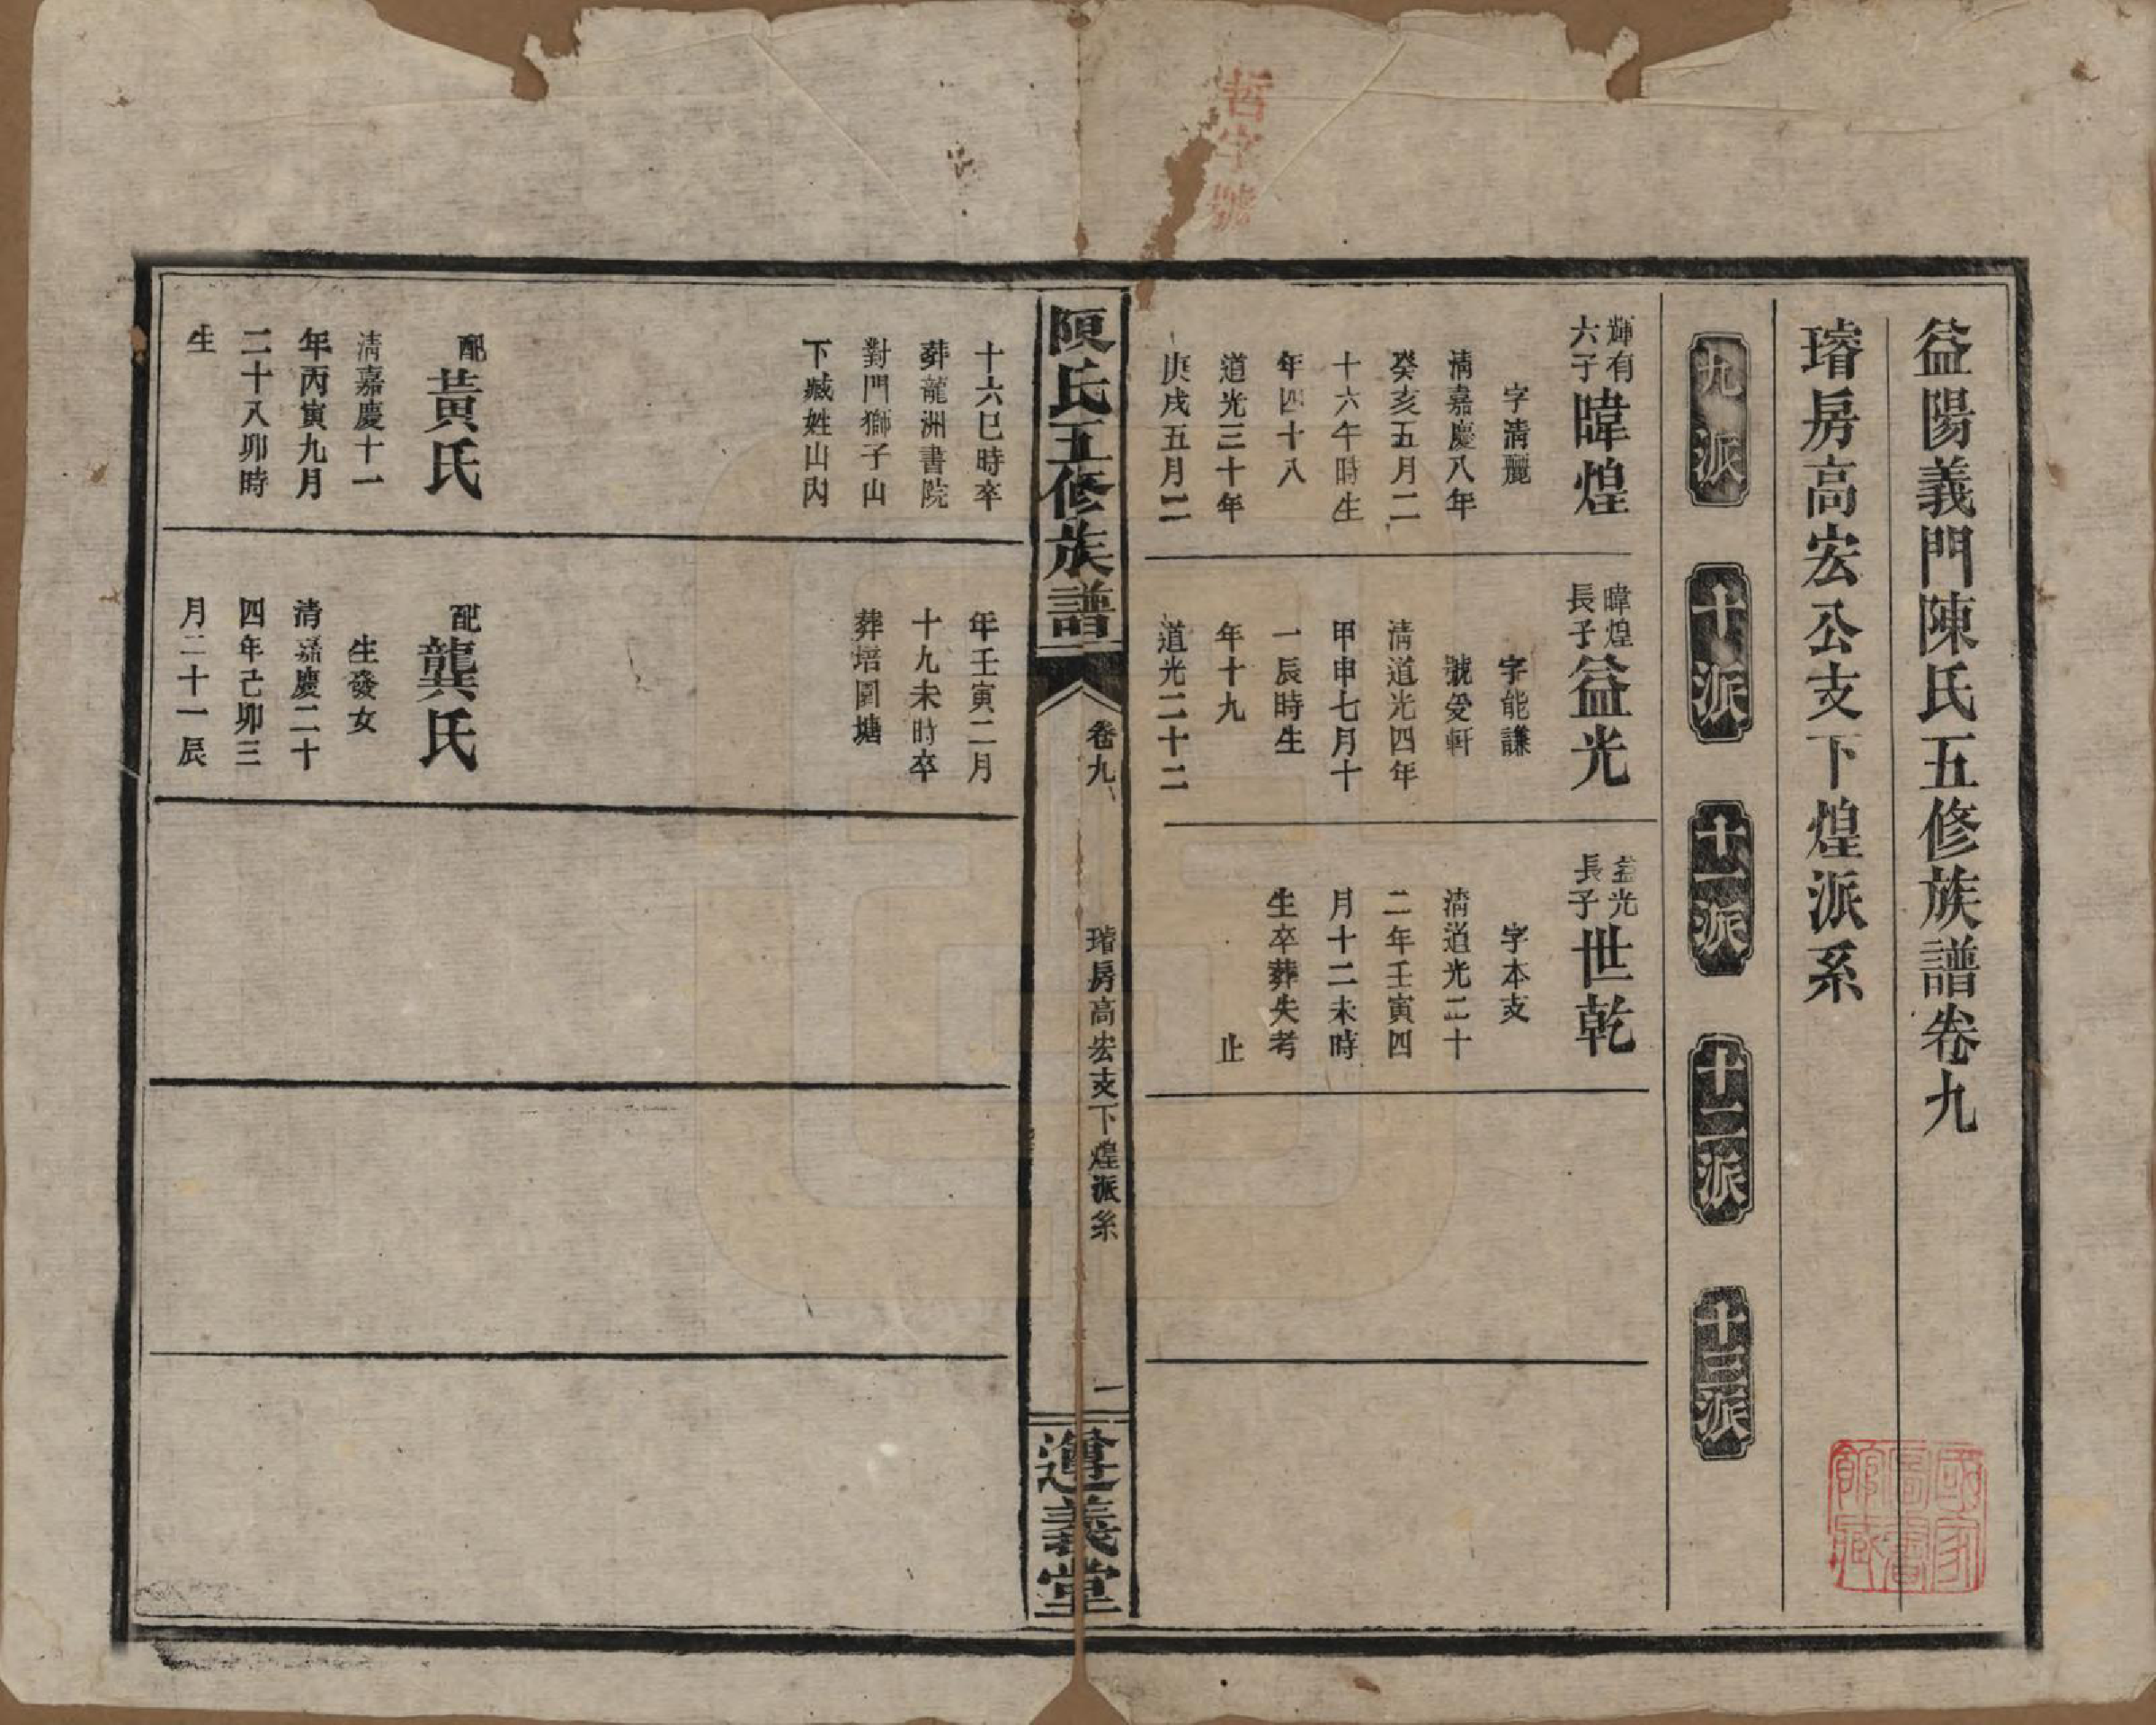 哲字號
益陽義門陳氏五修族譜卷九
璿房高宏公支下煌派系
九派
十派
十一派
十二派
十三派
輝有
六子
暐煌
字清麗
清嘉慶八年
癸亥五月二
十六午時生
年四十八
道光三十年
庚戌五月二
暐煌
長子
益光
字能謙
號愛軒
清道光四年
甲申七月十
一辰時生
年十九
道光二十二
益光
長子
世乾
字本支
清道光二十
二年壬寅四
月十二未時
生卒葬失考
止
陳氏五修族譜
卷九
璿房高宏支下煌派系
二
遵義堂
十六巳時卒
葬龍洲書院
對門獅子山
下臧姓山內
配
黃氏
清嘉慶十一
年丙寅九月
二十八卯時
生
年壬寅二月
十九未時卒
葬培園塘
配
龔氏
生發女
清嘉慶二十
四年己卯三
月二十一辰
國家圖書館藏